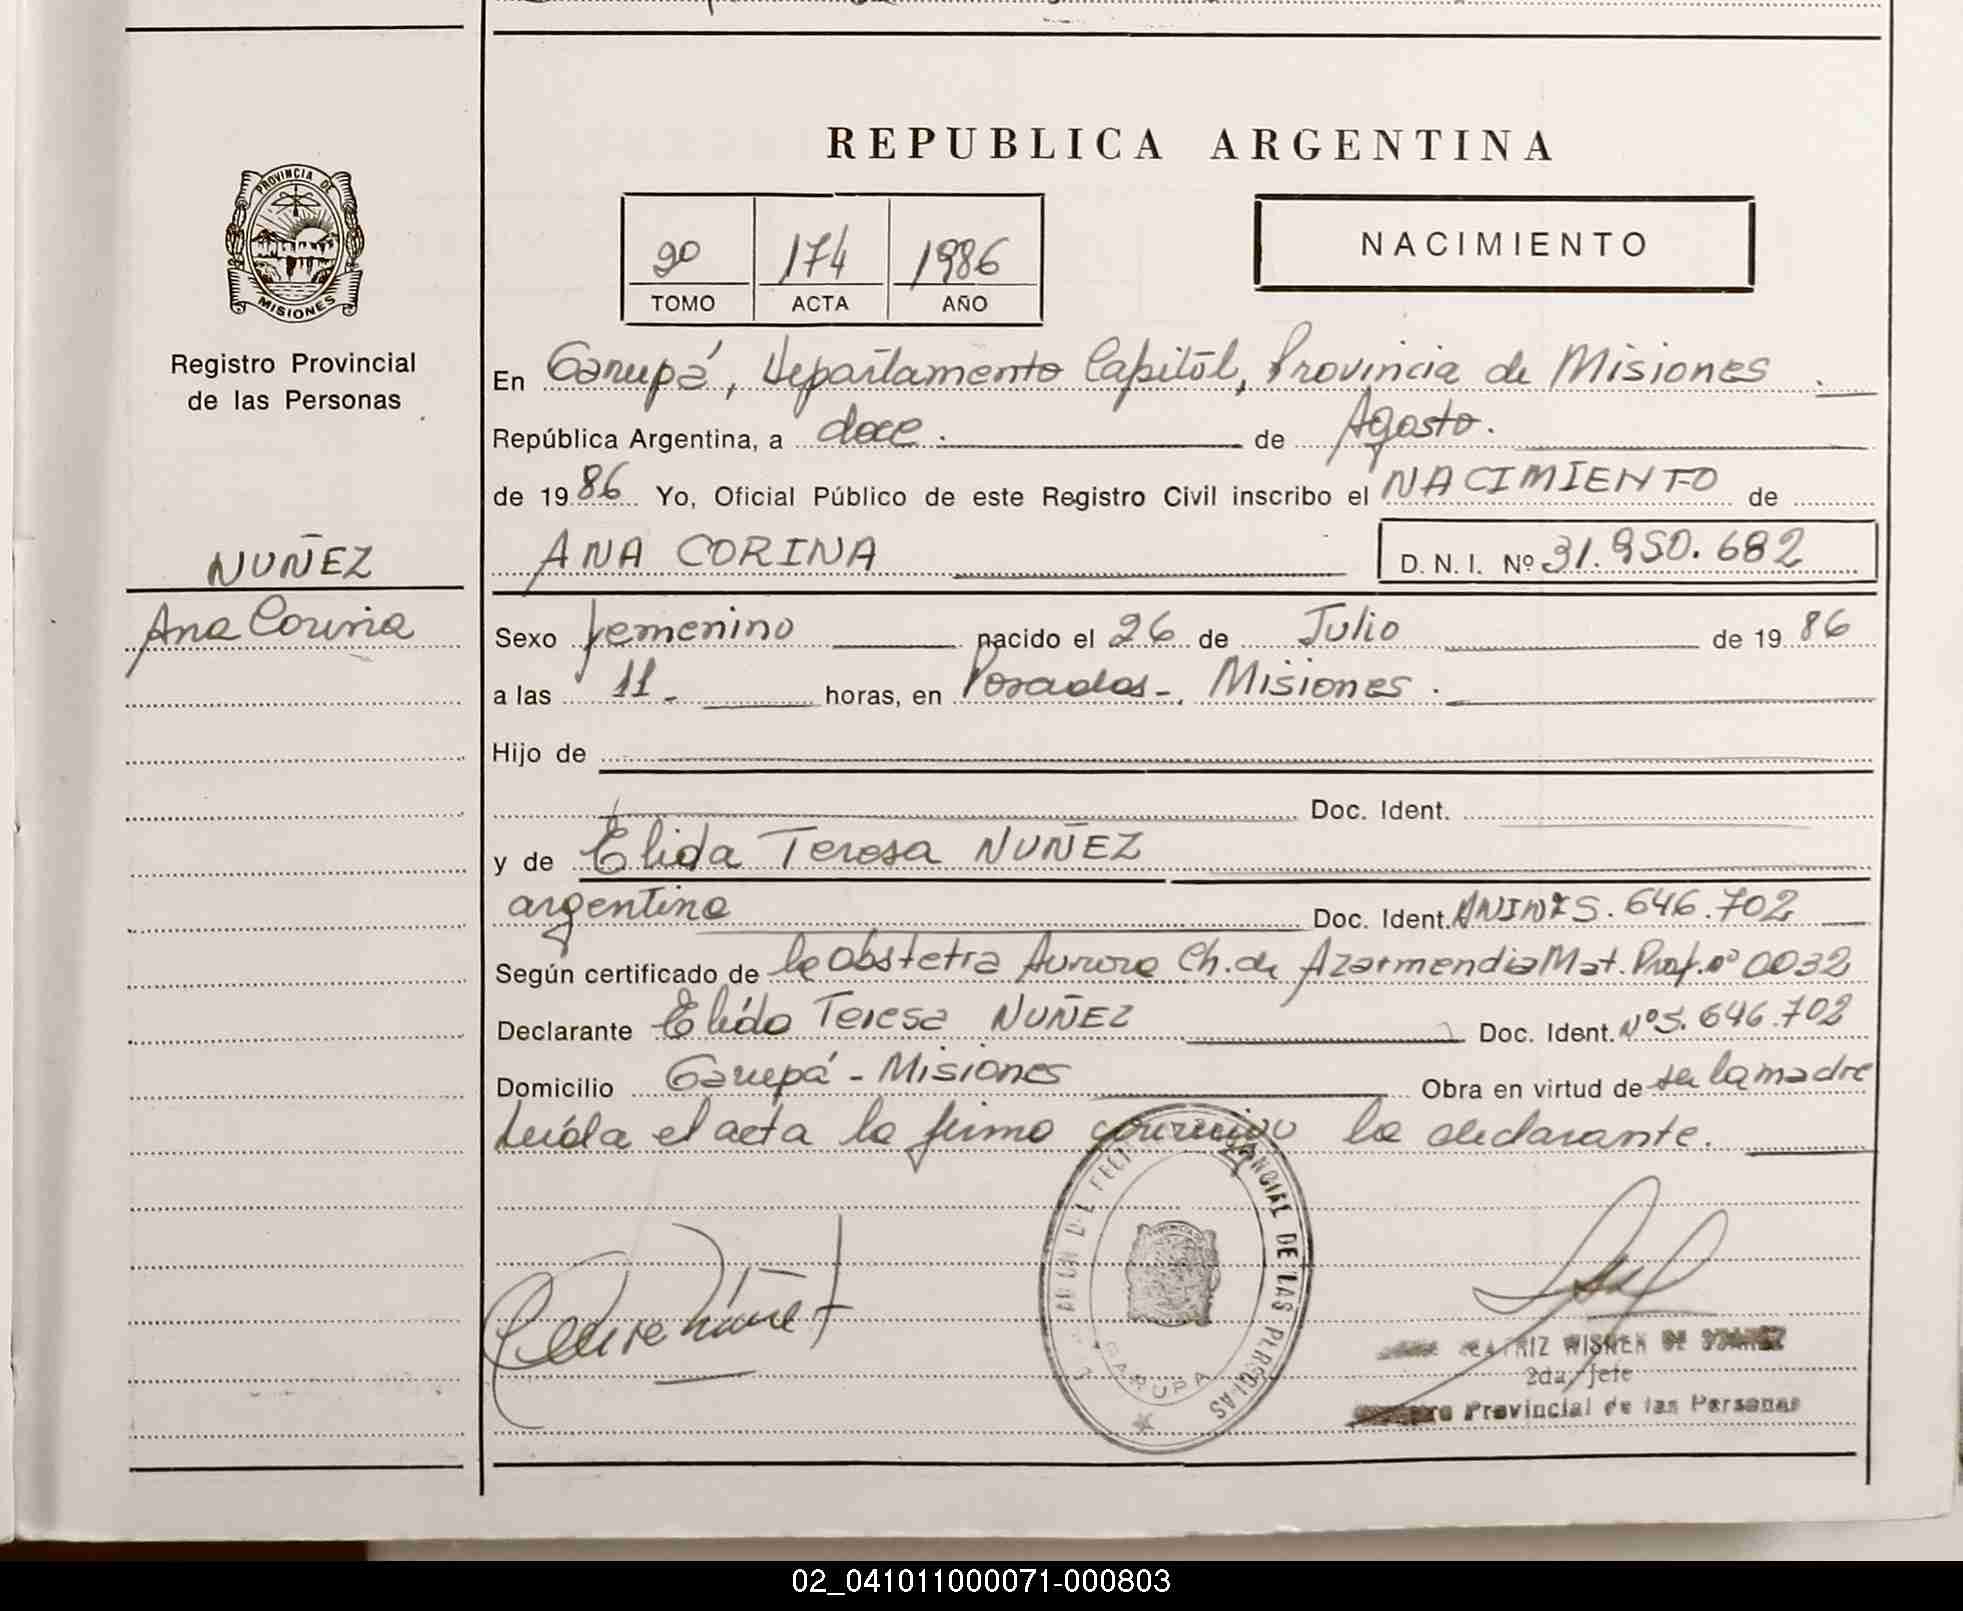 REPUBLICA ARGENTINA
PROVINCIA DE
MISIONES
Registro Provincial
de las Personas
2º 174 1986
TOMO ACTA AÑO
NACIMIENTO
En Garupá, Departamento Capital, Provincia de Misiones
República Argentina, a doce. de Agosto.
de 1986 Yo, Oficial Público de este Registro Civil inscribo el NACIMIENTO de
ANA CORINA D. N. I. Nº 31.950.682
NUÑEZ
Ana Corina
Sexo femenino nacido el 26 de Julio de 1986
a las 11 horas, en Posadas-, Misiones.
Hijo de
Doc. Ident.
y de Elida Teresa NUÑEZ
argentina Doc. Ident. 5.646.702
Según certificado de la Obstetra Aurora Ch. de Azarmendia Mat. Prof. nº 0032
Declarante Elida Teresa NUÑEZ Doc. Ident. Nº 5.646.702
Domicilio Garupá - Misiones Obra en virtud de ser la madre
Leída el acta la firma conmigo la declarante.
DE LAS PERSONAS
GARUPA
BEATRIZ WISNER DE
2da. Jefe
Provincial de las Personas
02_041011000071-000803